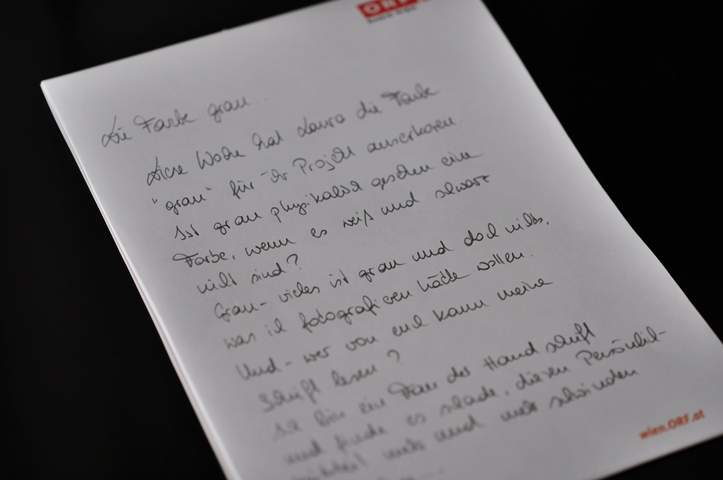 ORF
Die Farbe grau...
Diese Woche hat Laura die Farbe
"grau" für ihr Projekt auserkoren
Ist grau physikalisch gesehen eine
Farbe, wenn es weiß und schwarz
nicht sind?
Grau- vieles ist grau und doch nichts,
was ich fotografieren hätte wollen.
Und- wer von euch kann meine
Schrift lesen?
Ich bin eine Frau der Handschrift
und finde es schade, diesen Persönlich-
mehr und mehr schwinden
wien.ORF.at